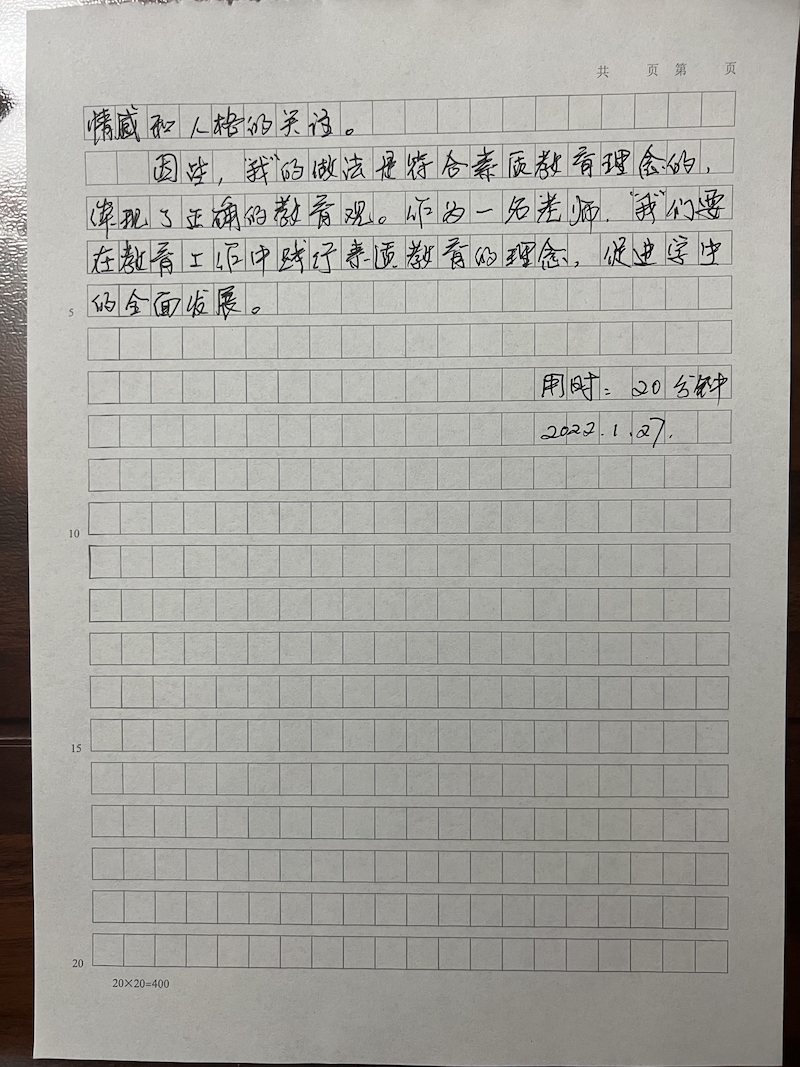 共 页 第 页
情感和人格的关注。
因此，“我”的做法是符合素质教育理念的，
体现了正确的教育观。作为一名老师，“我”们要
在教育工作中践行素质教育的理念，促进学生
的全面发展。
5
用时：20分钟
2022.1.27.
10
15
20
20×20=400